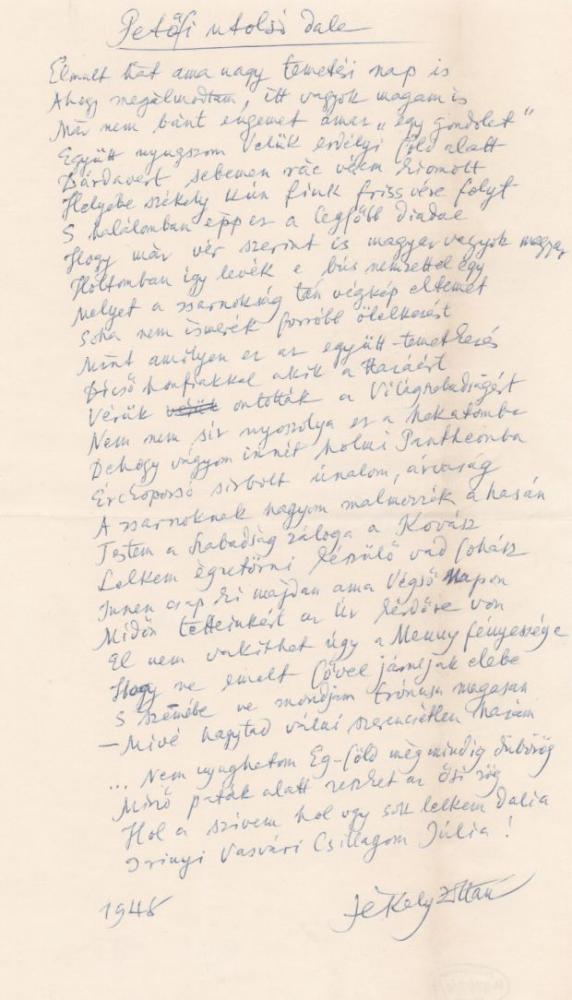 Petőfi utolsó dala
Elmult hát ama nagy temetési nap is
Ahogy megálmodtam, itt vagyok magam is
Már nem bánt engemet ámaz „egy gondolat"
Együtt nyugszom velük erdélyi föld alatt
Dárdavert sebemen rác vérem kiomlott
Helyébe székely kún fiuk friss vére folyt
S halálomban épp ez a legfőbb diadal
Hogy már vér szerint is magyar vagyok magyar
Holtomban így levék e bús nemzettel egy
Melyet a zsarnokság tán végkép eltemet
Soha nem ismerék forróbb ölelkezést
Mint amilyen ez az együtt-temetkezés
Dicső honfiakkal akik a Hazáért
Vérük ontották a Világszabadságért
Nem nem sír nyoszolya ez a hekatomba
Dehogy vágyom innét holmi Pantheonba
Érckoporsó sírbolt únalom, árvaság
A zsarnoknak hagyom malmozzék a hasán
Testem a Szabadság záloga a Kovász
Lelkem égretörni készülő vad lobász
Innen csap ki majdan ama Végső Napon
Midőn tetteinkért az Úr kérdőre von
El nem vakíthat úgy a Menny fényessége
Hogy ne emelt fővel járuljak elébe
S szemébe ne mondjam trónusa magasan
— Mivé hagytad válni szerencsétlen hazám
... Nem nyughatom Ég-föld még mindig dübörög
Minő paták alatt reszket az ősi rög
Hol a szívem hol vgy sok lelkem dalia
Irinyi Vasvári Csillagom Júlia!
1948
Jékely Zoltán